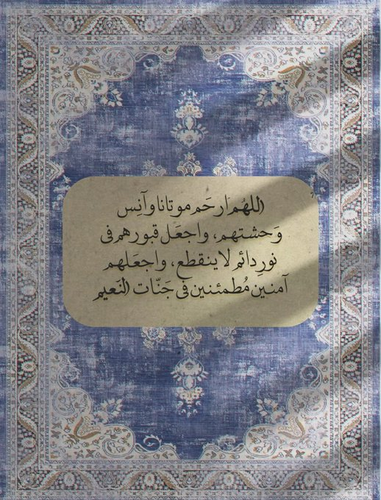 اللهم ارحَم موتانا وآنِس
وَحشتهم، واجعَل قبورهم في
نورِ دائم لا ينقطع، واجعَلهم
آمنين مُطمئنين في جَنّات النَعيم